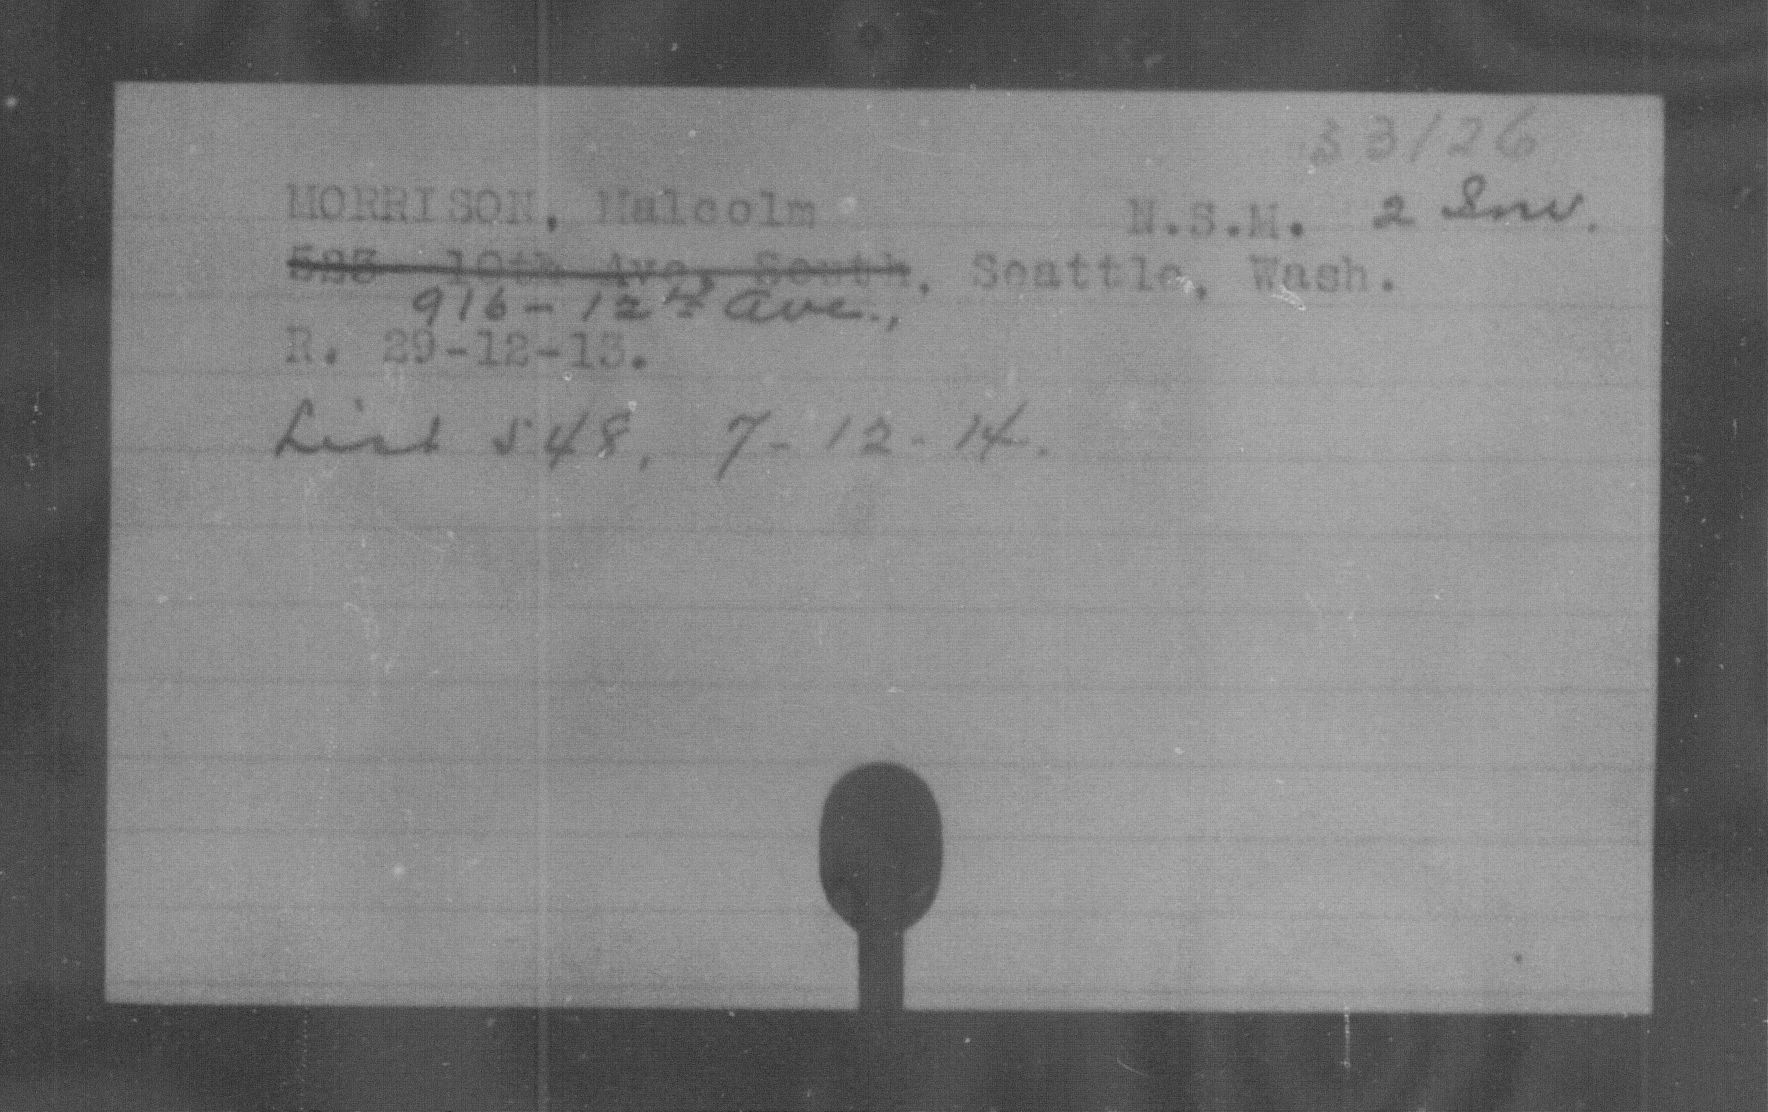 33/26
MORRISON, Malcolm N.S.M. 2 Inv.
523 10th Ave. South, Seattle, Wash.
916-12th Ave.,
R. 29-12-13.
List 548, 7-12-14.